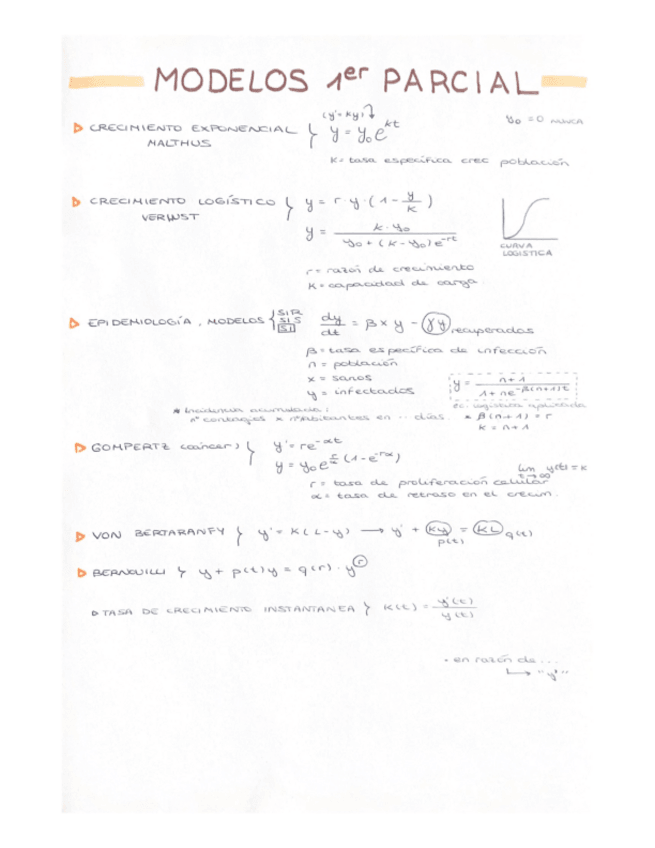 MODELOS 1er PARCIAL
(y'=ky)
CRECIMIENTO EXPONENCIAL } y = y₀e^kt
MALTHUS
y₀ = 0 NUNCA
K = tasa específica crec población
CRECIMIENTO LOGÍSTICO } y = r · y · (1 - y/K)
VERWST
y = K · y₀ / y₀ + (K - y₀) e^-rt
CURVA
LOGISTICA
r = razón de crecimiento
K = capacidad de carga.
EPIDEMIOLOGÍA, MODELOS { SIR
SIS
SI
dy/dt = βxy - γy recuperados
β = tasa específica de infección
n = población
x = sanos
y = infectados
y = n+1 / 1 + ne^-β(n+1)t
ec. logística aplicada
* Incidencia acumulada:
nº contagios x nºhabitantes en .. días.
* β(n+1) = r
K = n+1
GOMPERTZ (cáncer) } y' = re^-αt
lim t→∞ y(t) = K
r = tasa de proliferación celular
α = tasa de retraso en el crecim.
VON BERTARANFY } y' = K(L-y) → y' + Ky = KL
p(t) q(t)
BERNOUILLI } y + p(t)y = q(r) · y^r
TASA DE CRECIMIENTO INSTANTANEA } K(t) = y'(t)/y(t)
- en razón de ...
→ "y'"